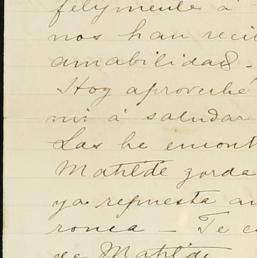 felizmente á
nos han reci
amabilidad.-
Hoy aproveché
mi á saludar
Las he encont
Matilde gorda
ya repuesta au
ronca - Te c
de Matilde